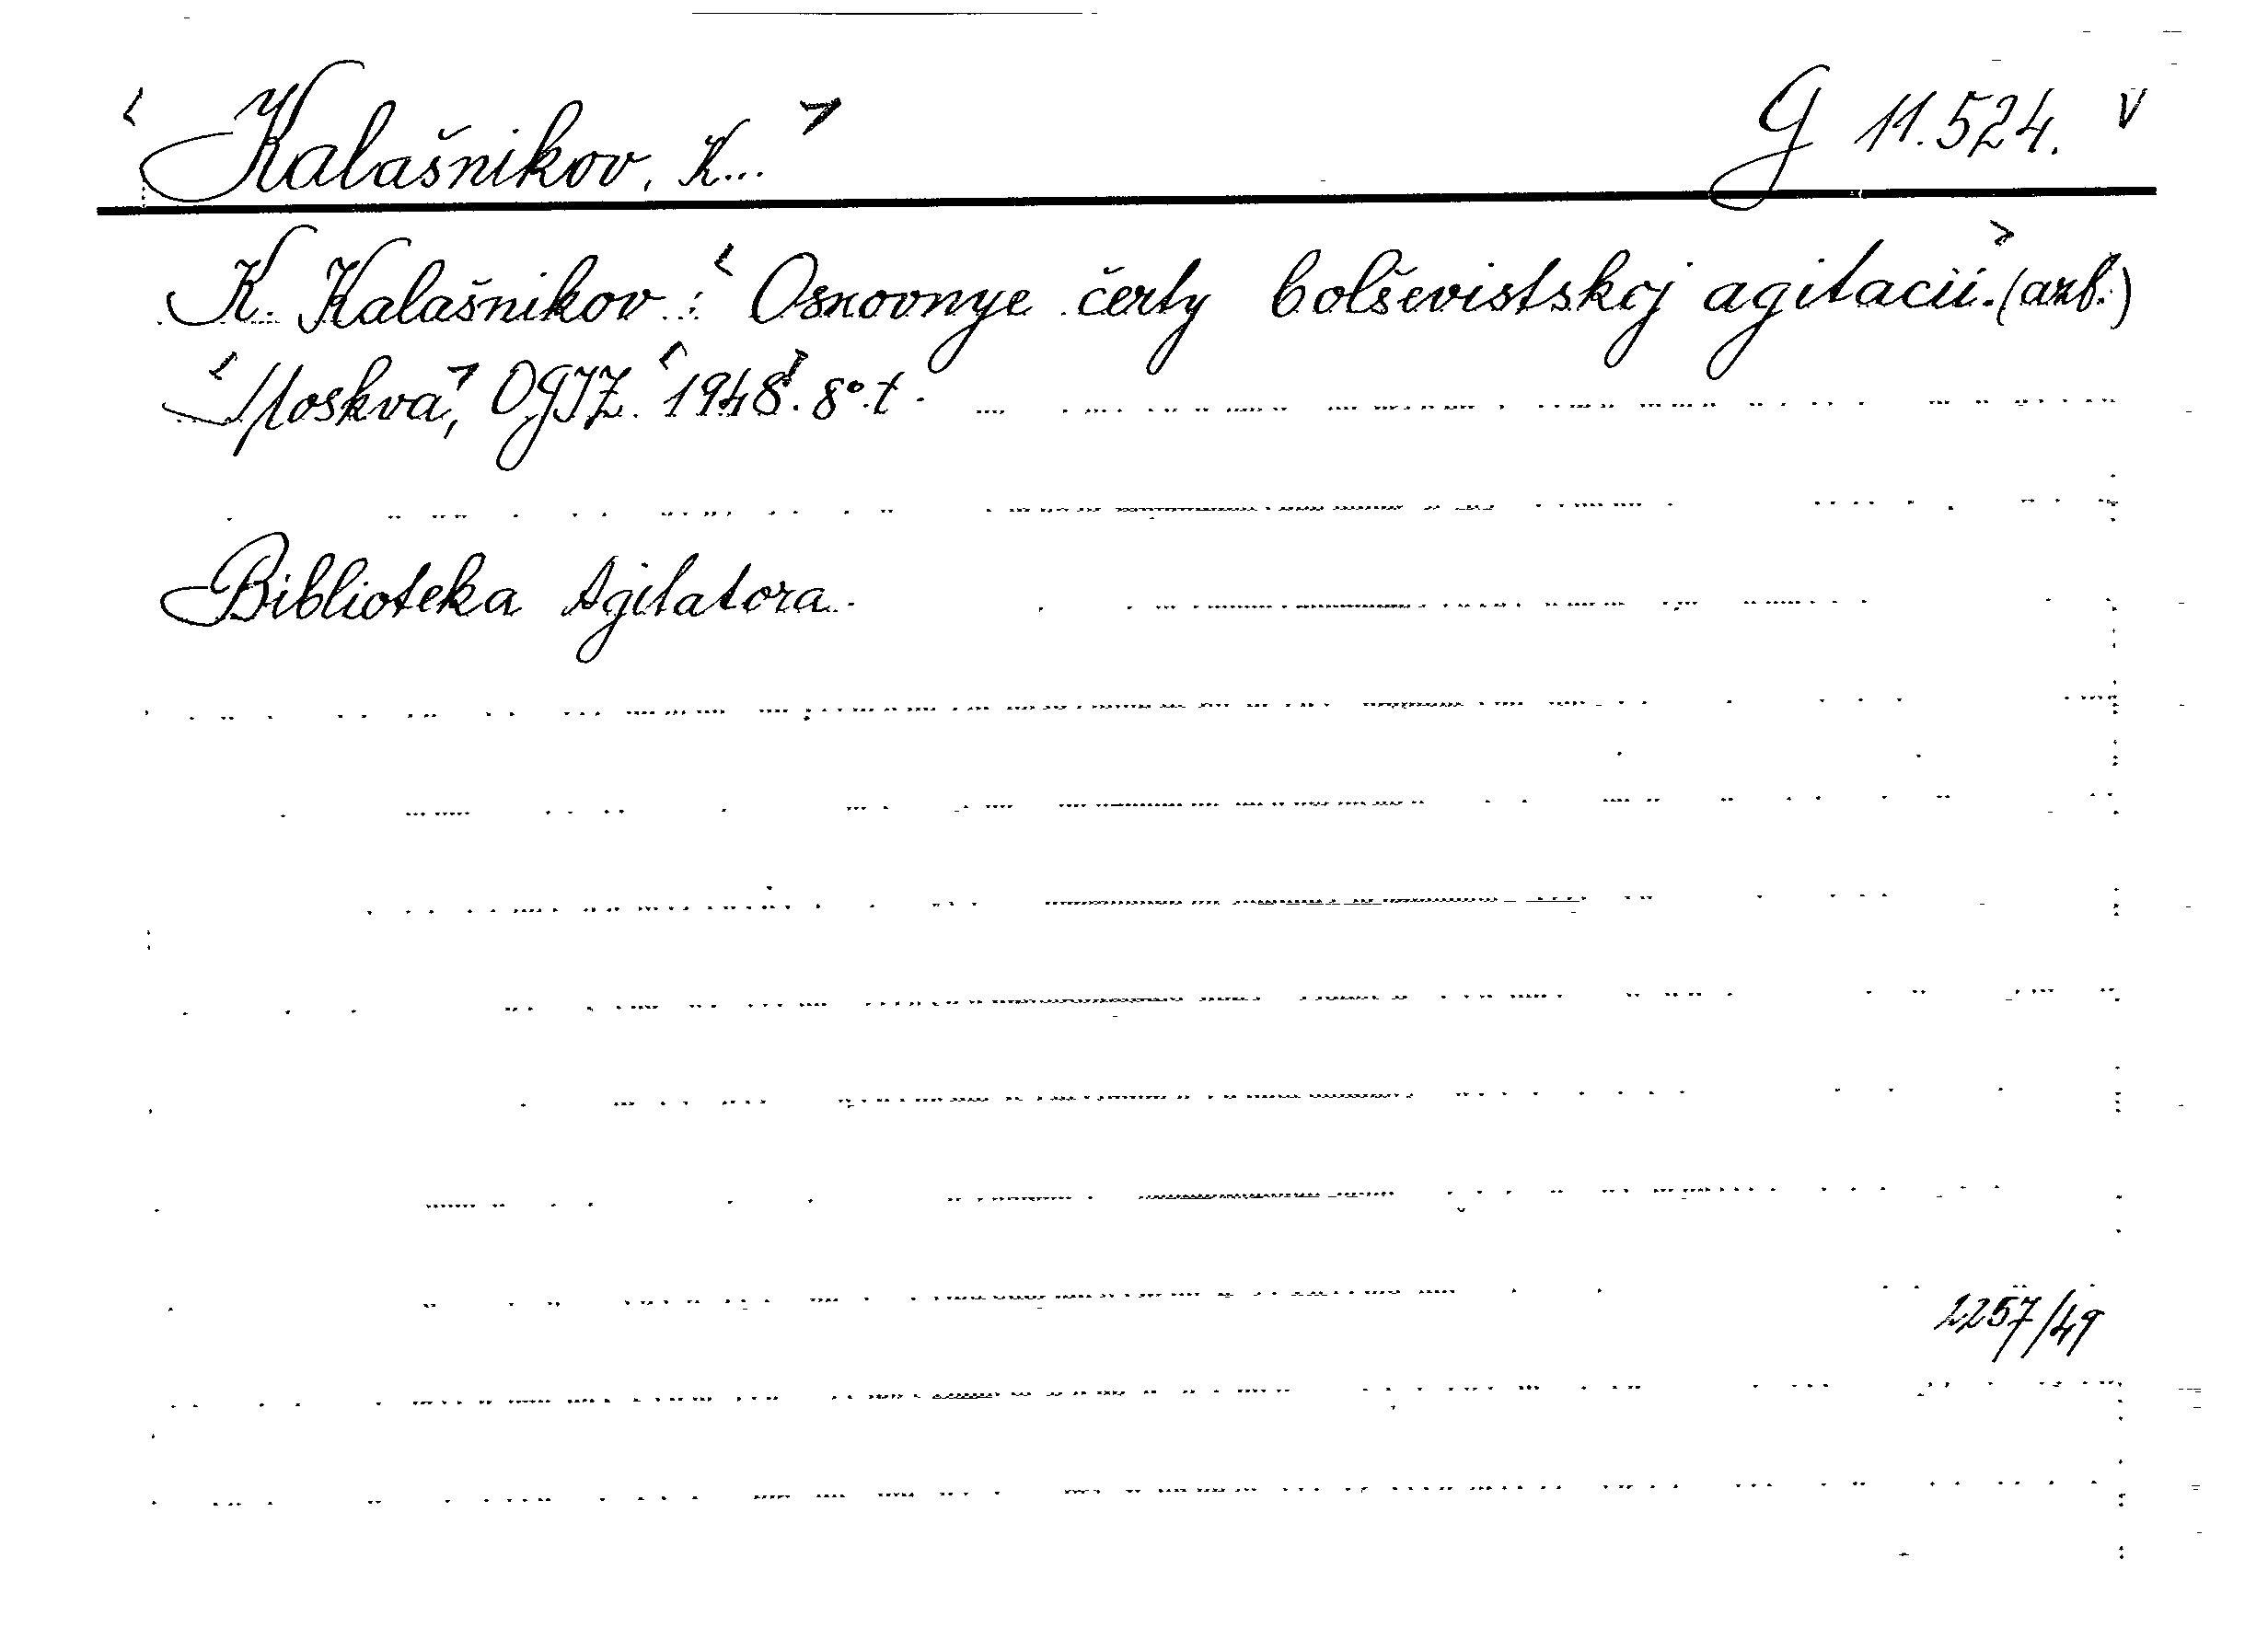 Kalašnikov, K... G 11.524. V
K. Kalašnikov: Osnovnye čerty bolševistskoj agitacii. (azb.)
Moskva, OGIZ. 1948. 8°. t.
Biblioteka Agitatora.
2257/49